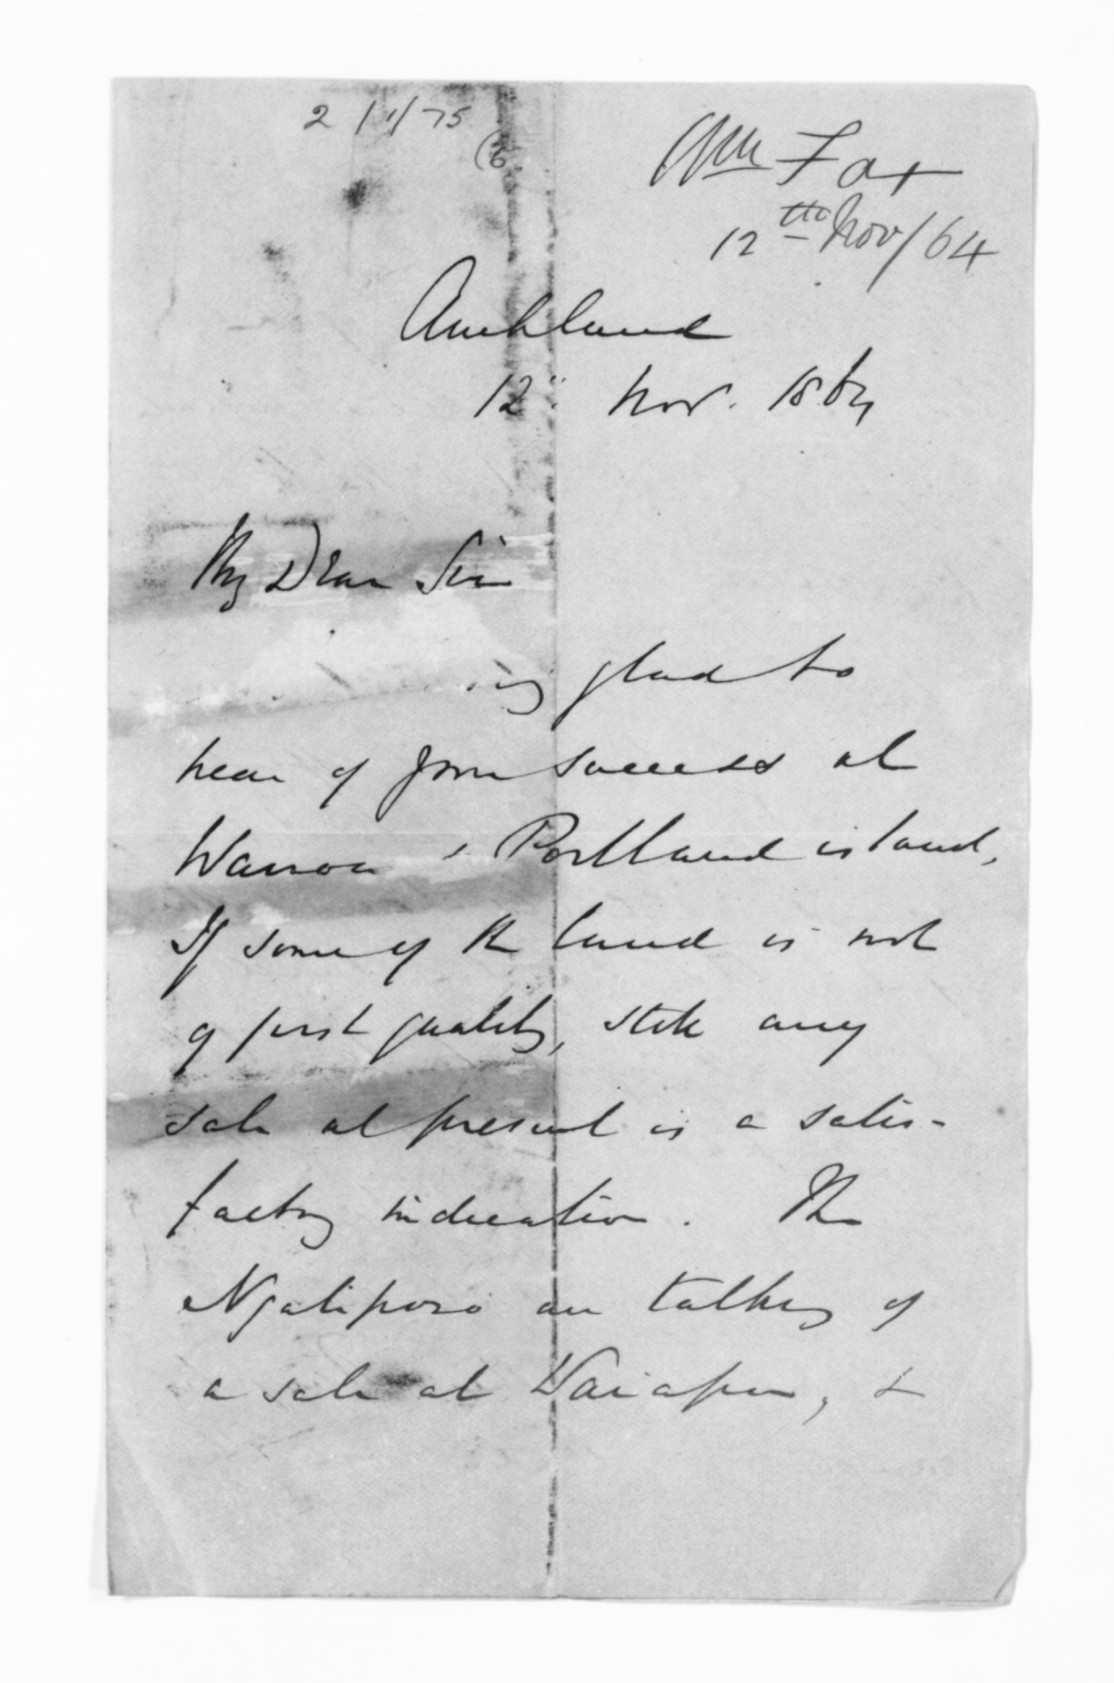 2/1/75
(6
Wm Fox
12th Nov/64
Auckland
12" Nov. 1864
My Dear Sir
glad to
hear of your success at
Wairoa & Portland island,
If some of the land is not
of first quality, still any
sale at present is a satis-
factory indication. The
Ngatiporo are talking of
a sale at Waiapu, &